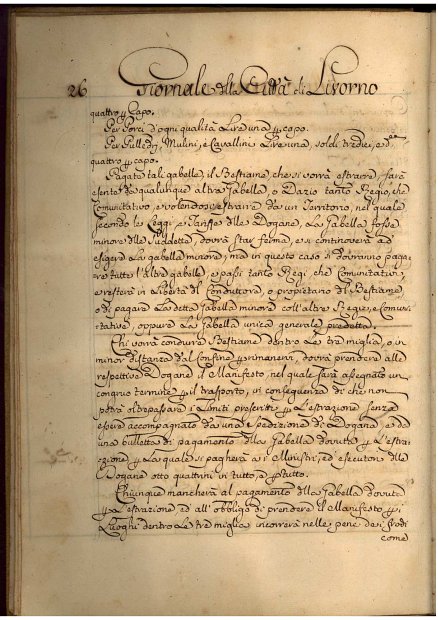 26 Giornale della Città di Livorno
quattro p Capo.
Per Porci d'ogni qualità Lire una p capo.
Per Pulledri, Mulini, e Cavallini Lire una, soldi tredici, e d.
quattro p capo.
Pagate tali gabelle, il Bestiame, che si vorrà estraere, sarà
esente da qualunque altra Gabella, o Dazio tanto Regio, che
Comunitativo, e volendosi estrarre da un Territorio, nel quale
secondo le Leggi, e Tariffe dlle Dogane, La Gabella fosse
minore dlle Suddette, dovrà star ferma, e si continoverà ad
esigere La gabella minore, ma in questo caso si dovranno paga=
re tutte l'altre gabelle, e passi tanto Regi, che Comunitativi,
e resterà in Libertà dl Conduttore, o propietario dl Bestiame
o di pagare La detta Gabella minore coll'altre Regie, e Comuni=
tative, oppure La Gabella unica generale predetta.
Chi vorrà condurre Bestiame dentro Le tre miglia, o in
minor distanza dal confine p rimanervi, dovrà prendere alle
respettive Dogane il Manifesto, nel quale sarà assegnato un
congruo termine p il trasporto, in conseguenza di che non
potrà oltrepassare i Limiti prescritti p L'estrazione senza
essere accompagnato da una spedizione di Dogana, e da
una bulletta di pagamento dlla Gabella dovuta p L'estra=
zione, p La quale si pagherà a i Ministri, ed esecutori dlle
Dogane otto quattrini in tutto, e p tutto.
Chiunque mancherà al pagamento dlla Gabella dovuta
p L'estrazione, ed all'obbligo di prendere il Manifesto p i
Luoghi dentro Le tre miglia incorrerà nelle pene de i Frodi
come